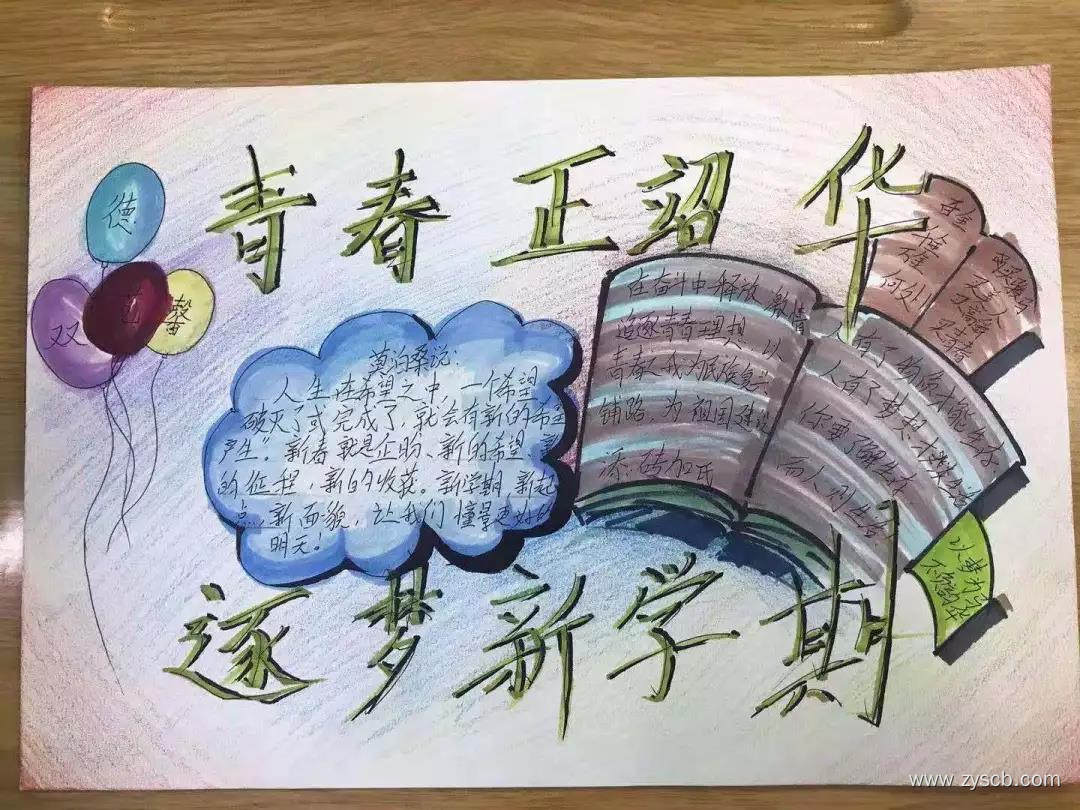 青春 正韶华
德
双
馨
莫泊桑说：
人生在希望之中，一个希望
破灭了或完成了，就会有新的希望
产生”。新春就是企盼、新的希望、新
的征程，新的收获。新学期，新起
点，新面貌，让我们憧景更好的
明天！
在奋斗中释放激情
追逐青春理想，以
青春之我为民族复
铺路，为祖国建设
添砖加瓦
人有了物质才能生存
人有了梦想才
你要了解生
而人
何处
逐梦新学期
www.zyscb.com